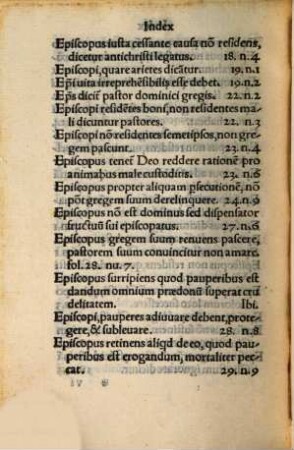 Index
Episcopus iusta cessante causa nō residens,
dicetur antichristi legatus. 18. n. 4
Episcopi, quare arietes dicātur. 19. n. 1
Ep̄i vita irreprehēsibilis esse debet. 19. n. 2
Ep̄s dicit̄ pastor dominici gregis. 22. n. 2
Episcopi residētes boni, non residentes ma
li dicuntur pastores. 22. n. 3
Episcopi nō residentes semetipsos, non gre
gem pascunt. 23. n. 4
Episcopus tenet̄ Deo reddere rationē pro
animabus male custoditis. 23. n. 6
Episcopus propter aliquam psecutionē, nō
pōt gregem suum derelinquere. 24. n. 9
Episcopus nō est dominus sed dispensator
fructuū sui episcopatus. 27. n. 6
Episcopus gregem suum renuens pascere,
pastorem suum conuincitur non amare.
fol. 28. nu. 7.
Episcopus surripiens quod pauperibus est
dandum omnium prædonū superat cru
delitatem. Ibi.
Episcopi, pauperes adiuuare debent, prote
gere, & subleuare. 28. n. 8.
Episcopus retinens aliqd de eo, quod pau
peribus est erogandum, mortaliter pec
cat. 29. n. 9